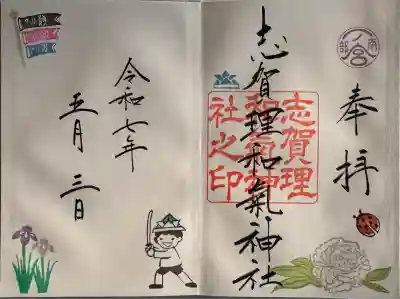 奉拝
志賀理和氣神社
志賀理
和氣神
社之印
令和七年
五月三日